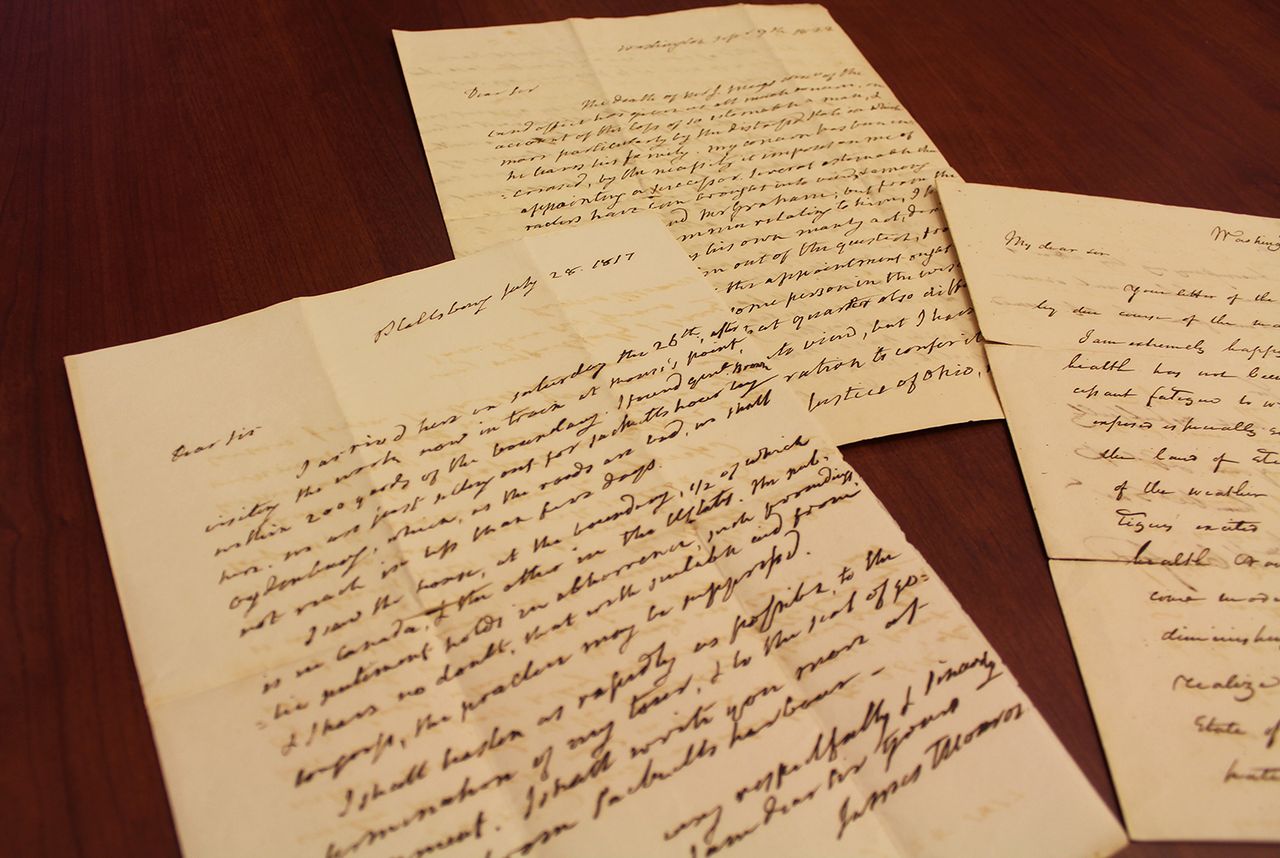 Washington Sept 9th 1822
Dear Sir
The death of Mr J. Meigs late of the
land office has given us all much concern, on
account of the loss of so estimable a man, &
more particularly by the distressed state in which
he leaves his family. My concern has been in
=creased, by the necessity it imposes on me of
appointing a successor. Several estimable cha
racters have been brought into view, & among
and Mr Graham; but from the
relating to him, I
his own manly act,
out of the question,
the appointment ought
some person in the west
at quarter also diff
to view, but I have
ration to confer it
Justice of Ohio,
Plattsburg July 28. 1817
Dear Sir
I arrived here on saturday the 26th, after
visiting the work now in train at Rouse's point,
within 200 yards of the boundary. I found genl. Brown
here. We are just setting out for Sacketts harbour by
Ogdensburg, which, as the roads are bad, we shall
not reach in less than five days.
I saw the house, at the boundary, 1/2 of which
is in Canada, & the other in the UStates. The pub-
=lic sentiment holds in abhorrence, such proceedings,
& I have no doubt, that with suitable aid from
Congress, the practice may be suppressed.
I shall hasten as rapidly as possible, to the
termination of my tour, & to the seat of go=
ernment. I shall write you more at
from Sacketts harbour—
very respectfully & sincerely
I am dear Sir yours
James Monroe
Washing
My dear sir
Your letter of the
by due course of the ma
I am extremely happ
health has not been
cessant fatigue to w
exposed especially
the land of
of the weather
tigues excites
health
come
diminish
realize
State of